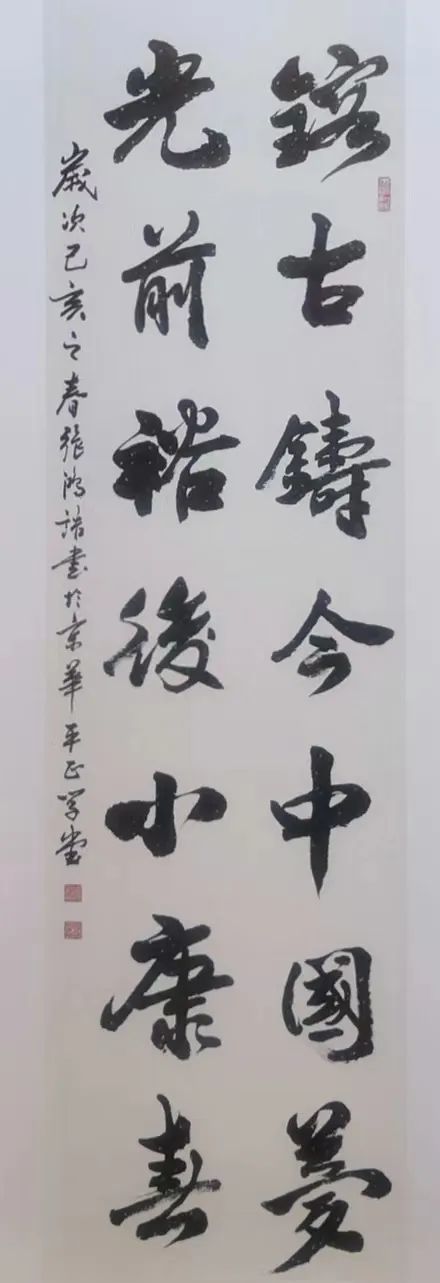 鎔古鑄今中國夢
光前裕後小康春
歲次己亥之春張鴻諾書於京華平正學堂